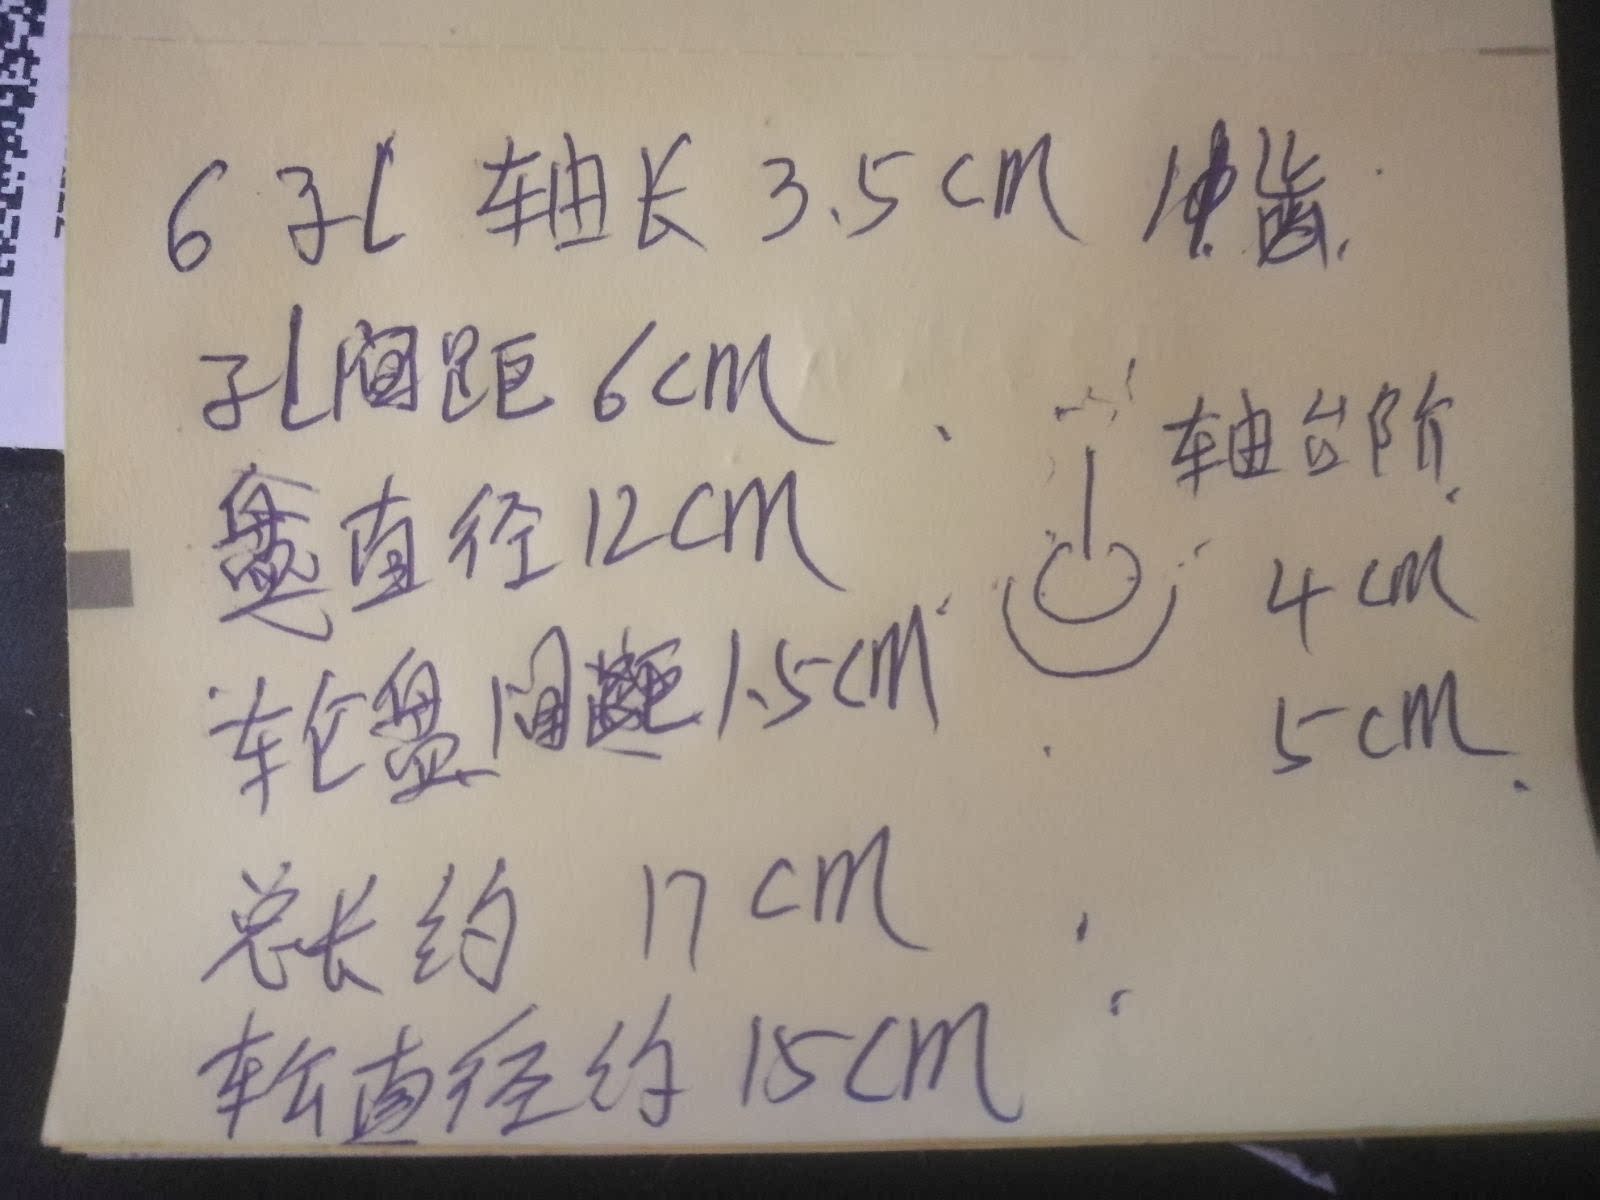 6孔 轴长 3.5cm 伸齿
孔间距 6cm
盘直径 12cm
轮盘间距 1.5cm
总长约 17cm
轮直径约 15cm
轴台阶
4cm
5cm